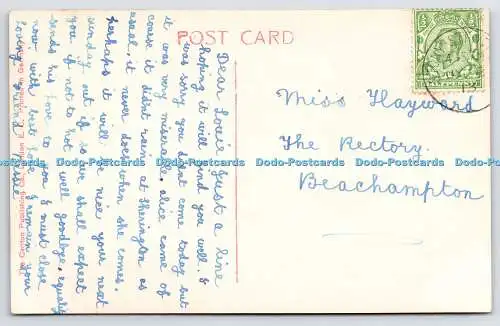 POST CARD
Dear Louie Just a line
hoping it will find you well. I
was sorry you didnt come today but
it was very miserable. Alice came of
course it didnt rain at Sherington as
usual, it never does when she comes.
Perhaps it will be nice your next
Sunday out if so we shall expect
you if not to hot. Well goodbye,
sends his love to you & must close
now with best love & remain your
loving friend
Miss Hayward
The Rectory.
Beachampton
The Carlton Publishing Co., London
Dodo-Postcards Dodo-Postcards Dodo-Postcards Dodo-Postcards Dodo-Postcards Dodo-Postcards